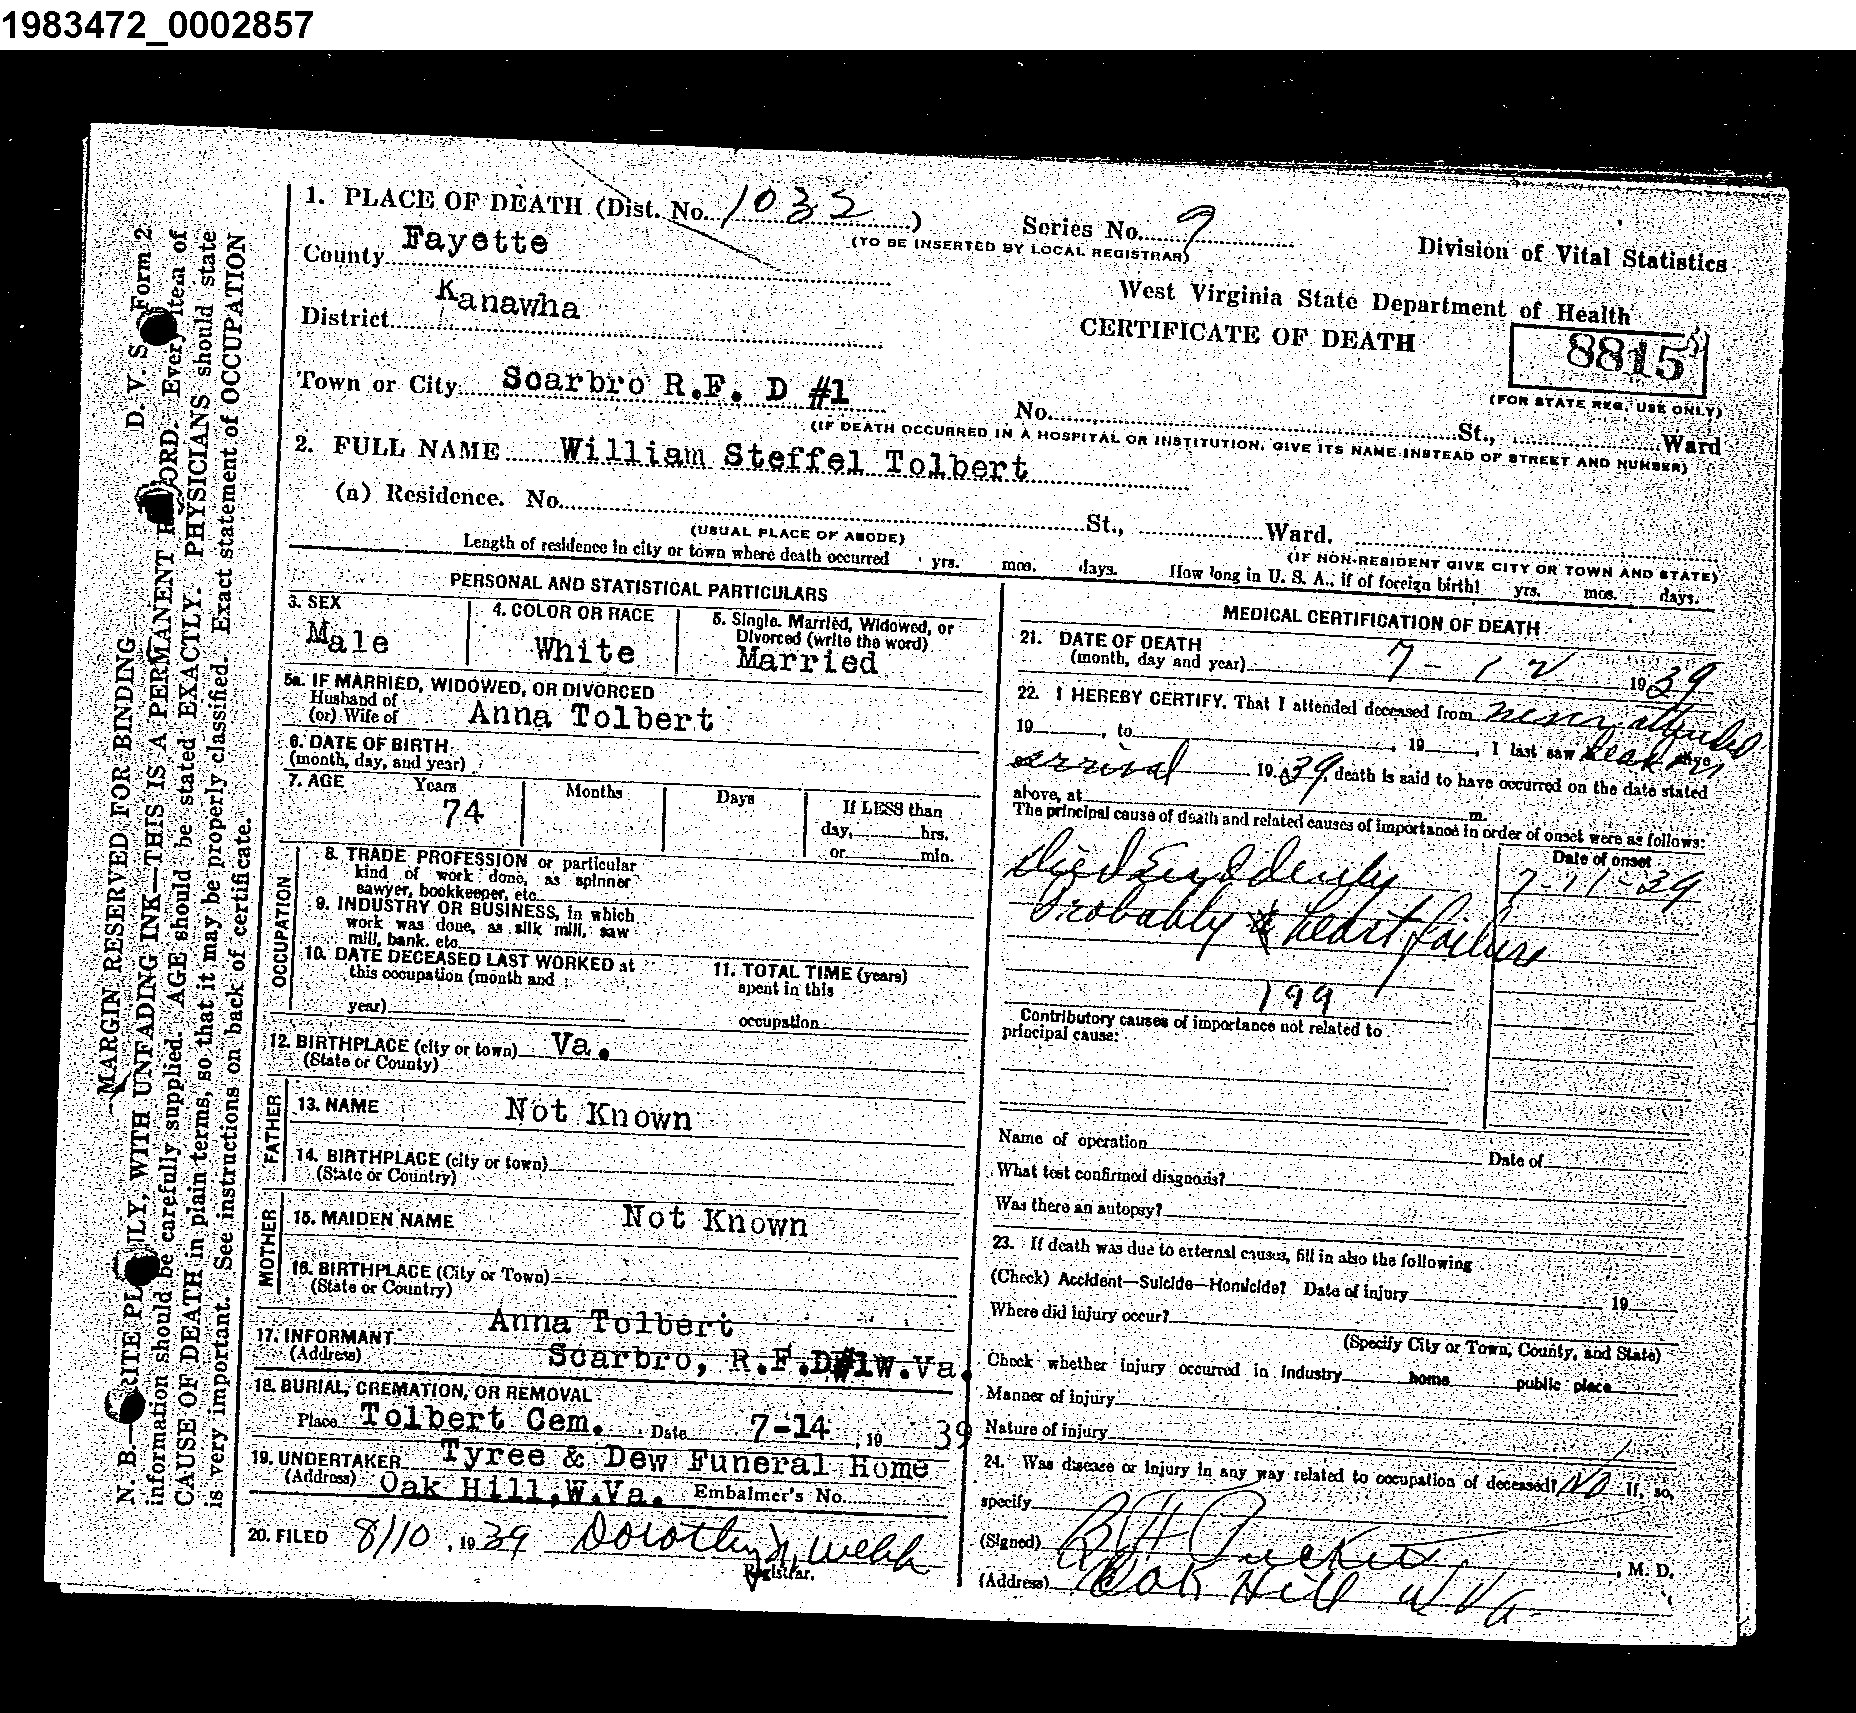 1983472_0002857
1. PLACE OF DEATH (Dist. No. 1032)
Series No. 9
(TO BE INSERTED BY LOCAL REGISTRAR)
Division of Vital Statistics
County Fayette
West Virginia State Department of Health
District Kanawha
CERTIFICATE OF DEATH
8815
(FOR STATE REG. USE ONLY)
Town or City Scarbro R.F. D #1
No. St., Ward
(IF DEATH OCCURRED IN A HOSPITAL OR INSTITUTION, GIVE ITS NAME INSTEAD OF STREET AND NUMBER)
2. FULL NAME William Steffel Tolbert
(a) Residence. No. St., Ward.
(USUAL PLACE OF ABODE)
(IF NON-RESIDENT GIVE CITY OR TOWN AND STATE)
Length of residence in city or town where death occurred yrs. mos. days. How long in U. S. A., if of foreign birth! yrs. mos. days.
PERSONAL AND STATISTICAL PARTICULARS
3. SEX
Male
4. COLOR OR RACE
White
5. Single, Married, Widowed, or
Divorced (write the word)
Married
5a. IF MARRIED, WIDOWED, OR DIVORCED
Husband of
(or) Wife of Anna Tolbert
6. DATE OF BIRTH
(month, day, and year)
7. AGE Years Months Days If LESS than
74
day, hrs.
or min.
OCCUPATION
8. TRADE PROFESSION or particular
kind of work done, as spinner
sawyer, bookkeeper, etc.
9. INDUSTRY OR BUSINESS, in which
work was done, as silk mill, saw
mill, bank, etc.
10. DATE DECEASED LAST WORKED at
this occupation (month and
year)
11. TOTAL TIME (years)
spent in this
occupation
12. BIRTHPLACE (city or town) Va.
(State or County)
FATHER
13. NAME Not Known
14. BIRTHPLACE (city or town)
(State or Country)
MOTHER
15. MAIDEN NAME Not Known
16. BIRTHPLACE (City or Town)
(State or Country)
Anna Tolbert
17. INFORMANT
(Address) Scarbro, R.F.D#1W.Va.
18. BURIAL, CREMATION, OR REMOVAL
Place Tolbert Cem. Date 7-14, 19 39
19. UNDERTAKER Tyree & Dew Funeral Home
(Address) Oak Hill,W.Va. Embalmer's No.
20. FILED 8/10, 1939 Dorothy N. Webb
Registrar.
MEDICAL CERTIFICATION OF DEATH
21. DATE OF DEATH
(month, day and year) 7-12 1939
22. I HEREBY CERTIFY, That I attended deceased from never attended
19 , to , 19 , I last saw dead on
arrival 1939, death is said to have occurred on the date stated
above, at m.
The principal cause of death and related causes of importance in order of onset were as follows:
Date of onset
Died Suddenly 7-11-39
Probably heart failure
199
Contributory causes of importance not related to
principal cause:
Name of operation Date of
What test confirmed diagnosis?
Was there an autopsy?
23. If death was due to external causes, fill in also the following
(Check) Accident—Suicide—Homicide? Date of injury 19
Where did injury occur?
(Specify City or Town, County, and State)
Check whether injury occurred in industry home public place
Manner of injury
Nature of injury
24. Was disease or injury in any way related to occupation of deceased? NO If, so,
specify
(Signed) B H Puckett, M. D.
(Address) Oak Hill W Va.
MARGIN RESERVED FOR BINDING D. V. S. Form 2
N. B.—WRITE PLAINLY, WITH UNFADING INK—THIS IS A PERMANENT RECORD. Every item of
information should be carefully supplied. AGE should be stated EXACTLY. PHYSICIANS should state
CAUSE OF DEATH in plain terms, so that it may be properly classified. Exact statement of OCCUPATION
is very important. See instructions on back of certificate.